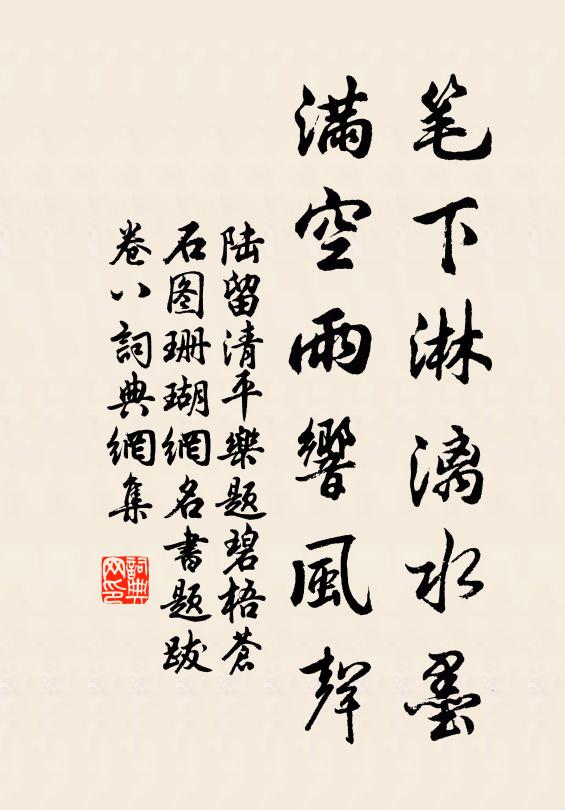 笔下淋漓水墨
滿空雨響風聲
陆留清平樂題碧梧蒼
石图珊瑚網名書題跋
卷八詞典網集
詞典网印